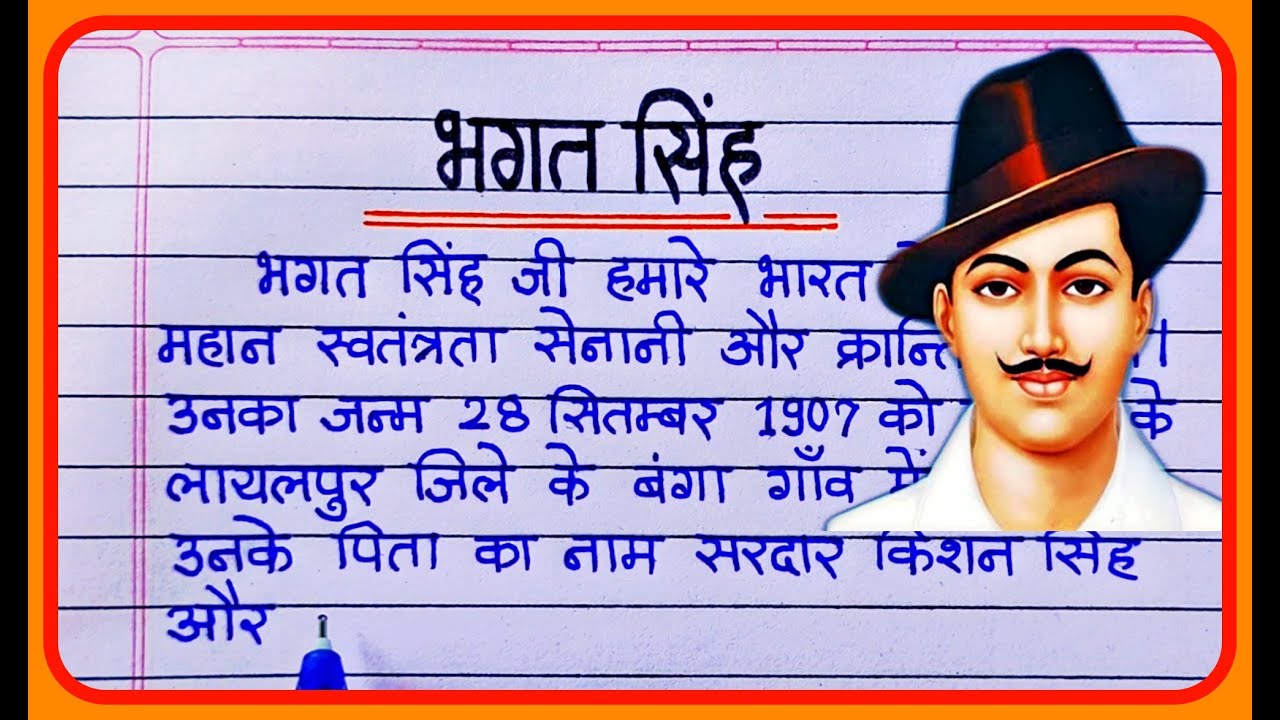 भगत सिंह
भगत सिंह जी हमारे भारत
महान स्वतंत्रता सेनानी और
उनका जन्म 28 सितम्बर 1907 को के
लायलपुर जिले के बंगा गाँव में
उनके पिता का नाम सरदार किशन सिंह
और